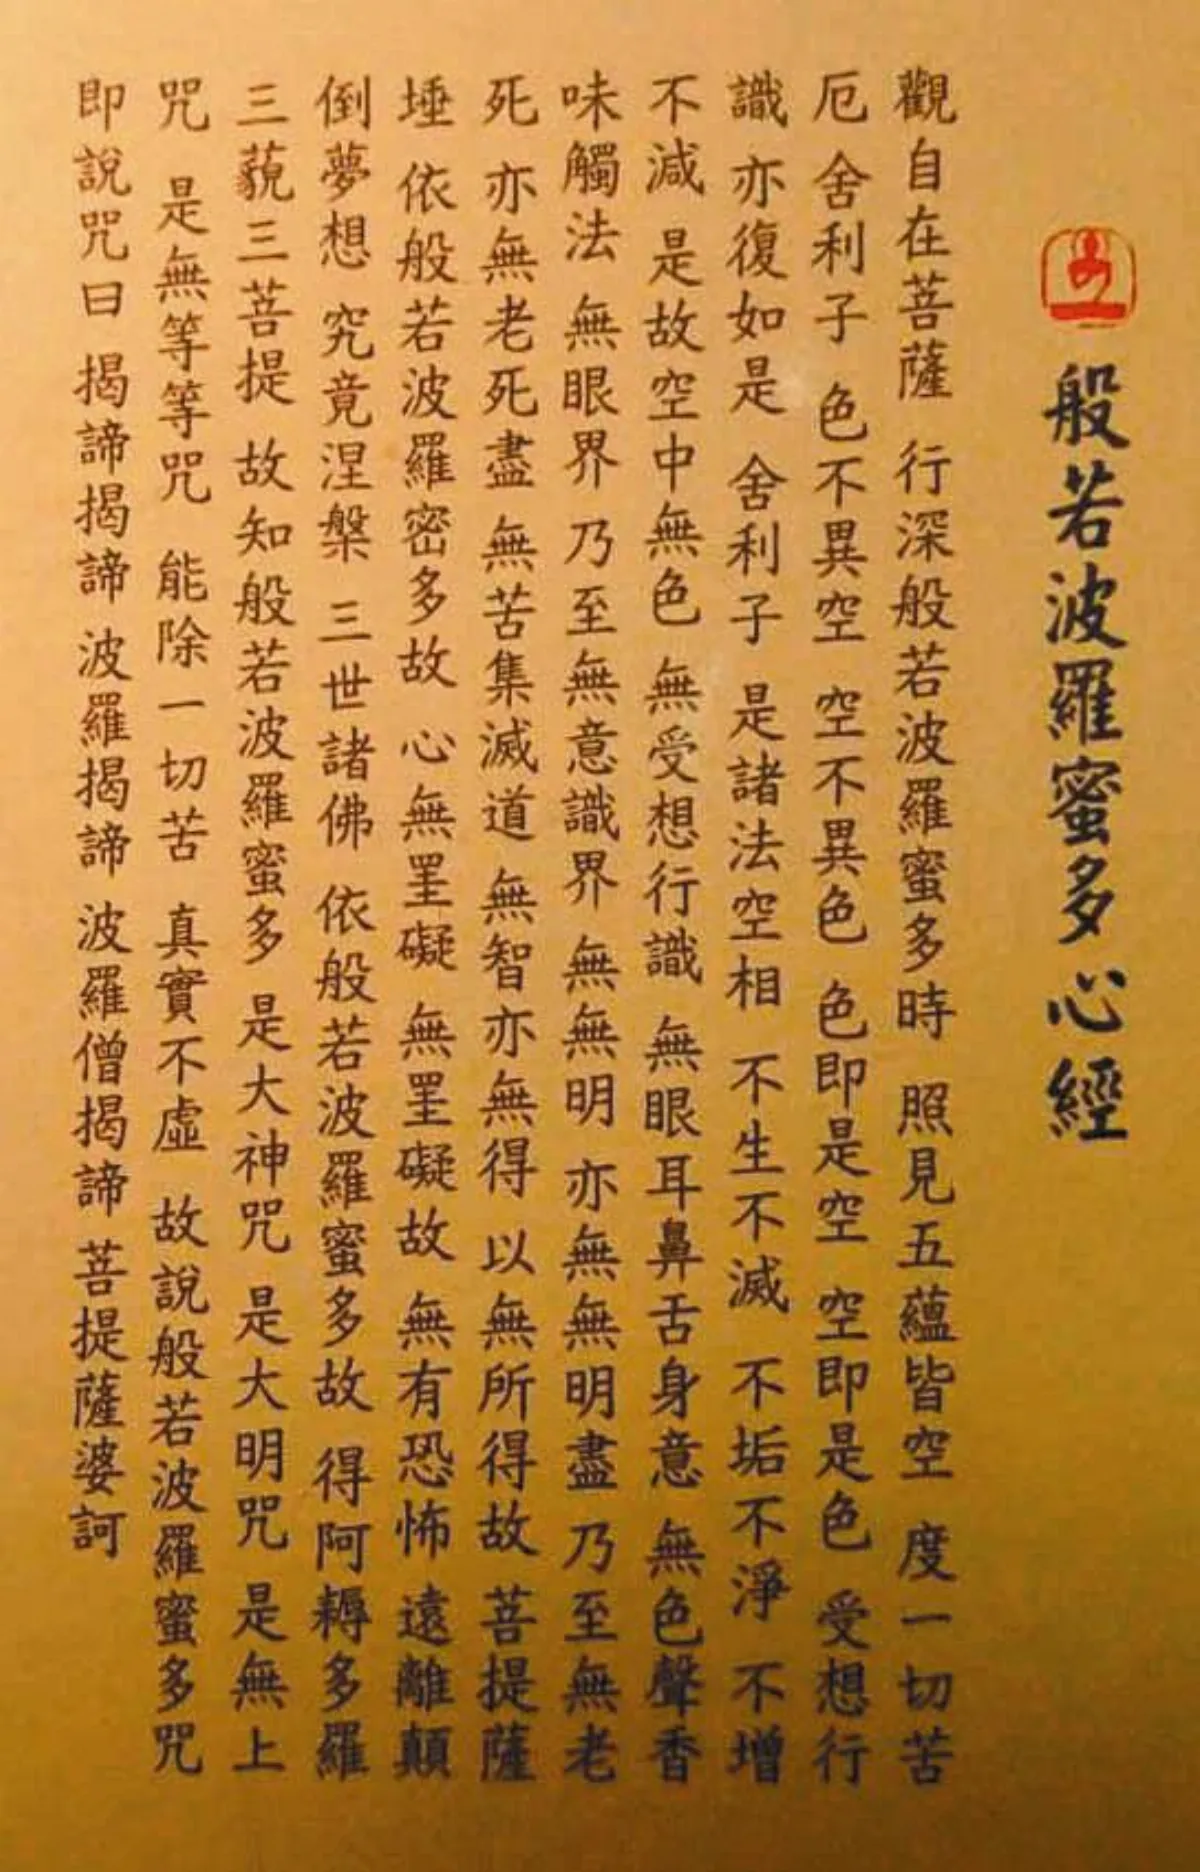 般若波羅蜜多心經
觀自在菩薩 行深般若波羅蜜多時 照見五蘊皆空 度一切苦
厄 舍利子 色不異空 空不異色 色即是空 空即是色 受想行
識 亦復如是 舍利子 是諸法空相 不生不滅 不垢不淨 不增
不減 是故空中無色 無受想行識 無眼耳鼻舌身意 無色聲香
味觸法 無眼界 乃至無意識界 無無明 亦無無明盡 乃至無老
死 亦無老死盡 無苦集滅道 無智亦無得 以無所得故 菩提薩
埵 依般若波羅密多故 心無罣礙 無罣礙故 無有恐怖 遠離顛
倒夢想 究竟涅槃 三世諸佛 依般若波羅蜜多故 得阿耨多羅
三藐三菩提 故知般若波羅蜜多 是大神咒 是大明咒 是無上
咒 是無等等咒 能除一切苦 真實不虛 故說般若波羅蜜多咒
即說咒曰 揭諦揭諦 波羅揭諦 波羅僧揭諦 菩提薩婆訶